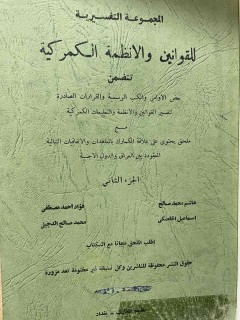 المجموعة التفسيرية
للقوانين والانظمة الكمركية
تتضمن
بعض الاوامر والكتب الرسمية والقرارات الصادرة
تفسير القوانين والانظمة والتعليمات الكمركية
مع
ملحق يحتوي على علاقة الكمارك بالمعاهدات والاتفاقيات التالية
المعقودة بين العراق والدول الاجنبية
الجزء الثاني
هاشم محمد صالح
فؤاد احمد مصطفى
اسماعيل
محمد صالح الدجيلي
اطلب الملحق مجانا مع الكتاب
حقوق النشر محفوظة للناشرين وكل نسخة غير مختومة تعد مزورة
بغداد